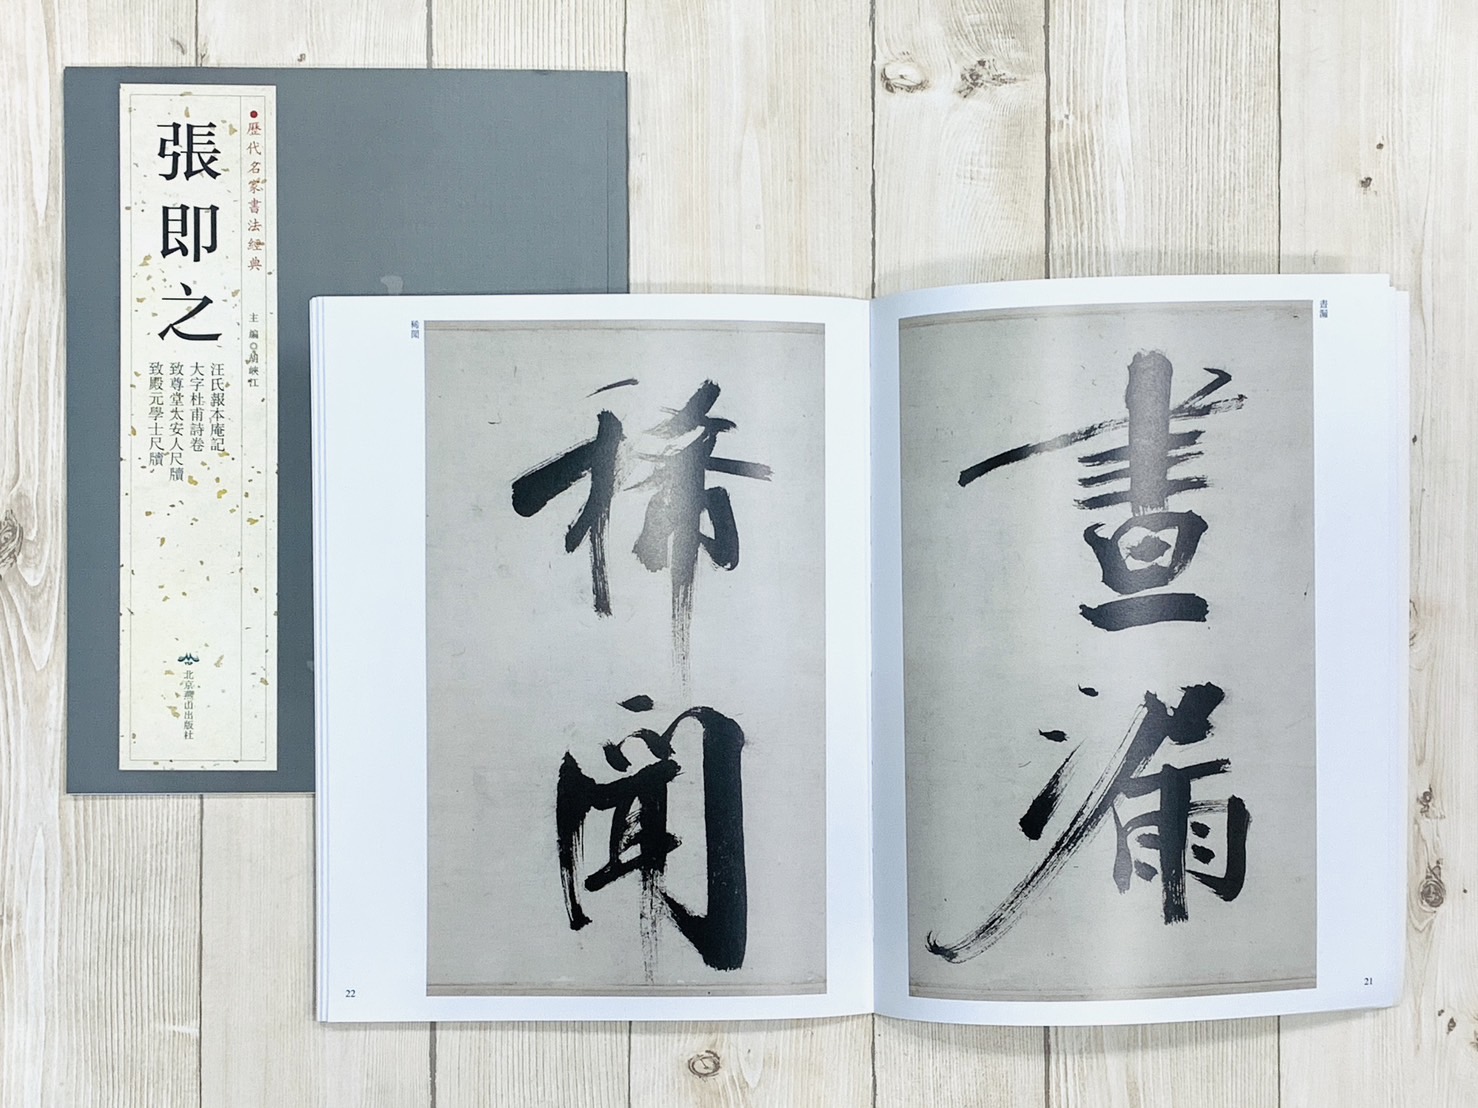 歷代名家書法經典
張即之
主編◎胡峽江
汪氏報本庵記
大字杜甫詩卷
致尊堂太安人尺牘
致殿元學士尺牘
北京燕山出版社
晝漏
晝漏
21
稀聞
稀聞
22